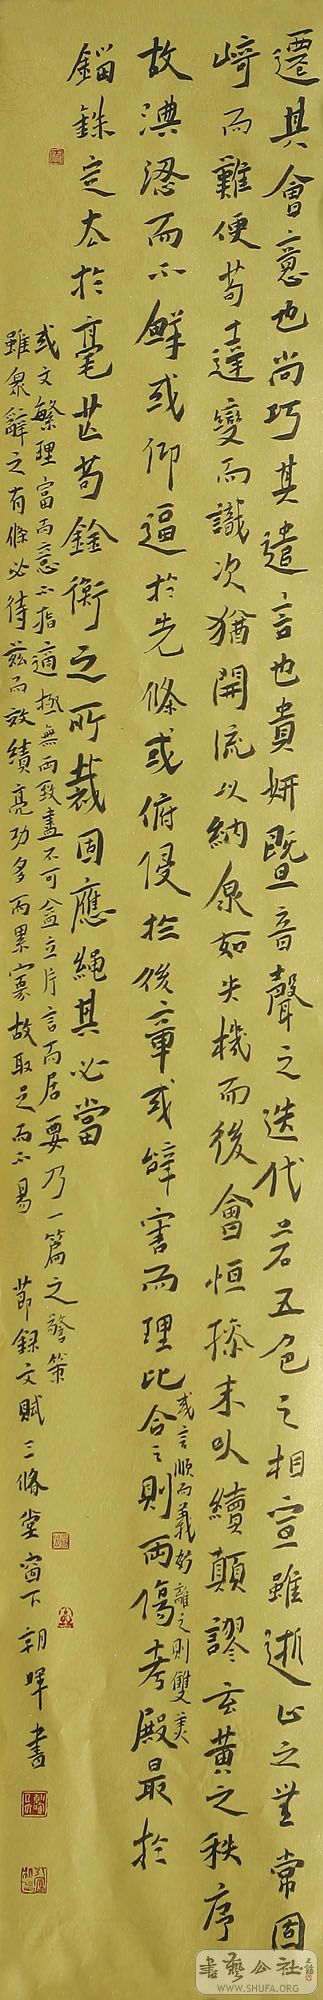 遷其會意也尚巧其遣言也貴妍暨音聲之迭代若五色之相宣雖逝止之無常固
崎而難便苟達變而識次猶開流以納泉如失機而後會恒操末以續顛謬玄黃之秩序
故淟涊而不鮮或仰逼於先條或俯侵於後章或辭害而理比合之則兩傷考殿最於
或言順而義妨離之則雙美
錙銖定去於毫芒苟銓衡之所裁固應繩其必當
或文繁理富而意不指適極無兩致盡不可益立片言而居要乃一篇之警策
雖眾辭之有條必待茲而效績亮功多而累寡故取足而不易 節錄文賦 三脩堂窗下 朝暉書
書藝公社
WWW.SHUFA.ORG